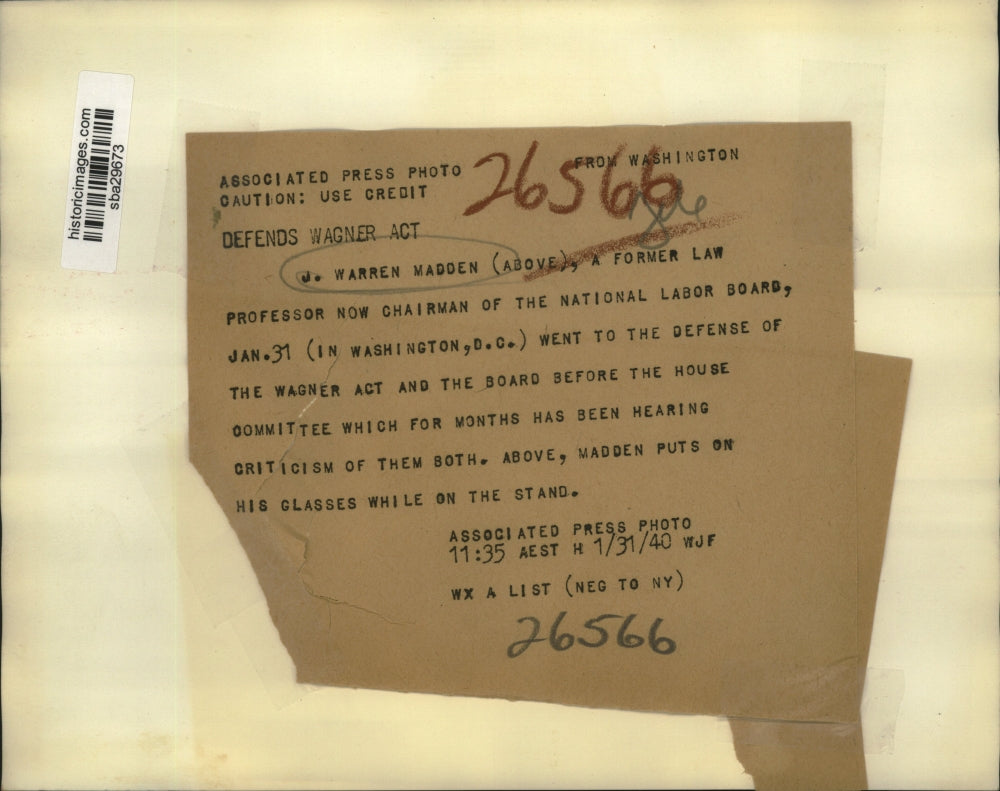 historicimages.com
sba29673
ASSOCIATED PRESS PHOTO
FROM WASHINGTON
CAUTION: USE CREDIT
26566
DEFENDS WAGNER ACT
J. WARREN MADDEN (ABOVE), A FORMER LAW
PROFESSOR NOW CHAIRMAN OF THE NATIONAL LABOR BOARD,
JAN.31 (IN WASHINGTON,D.C.) WENT TO THE DEFENSE OF
THE WAGNER ACT AND THE BOARD BEFORE THE HOUSE
COMMITTEE WHICH FOR MONTHS HAS BEEN HEARING
CRITICISM OF THEM BOTH. ABOVE, MADDEN PUTS ON
HIS GLASSES WHILE ON THE STAND.
ASSOCIATED PRESS PHOTO
11:35 AEST H 1/31/40 WJF
WX A LIST (NEG TO NY)
26566